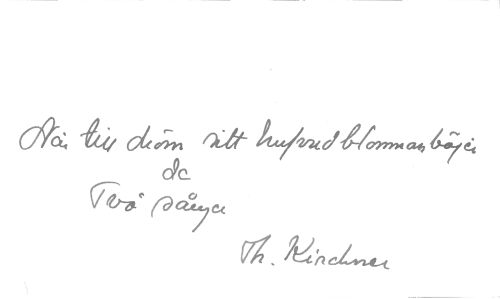 När till dröm sitt hufvud blomman böjer
dc
Två sånger
Th. Kirchner